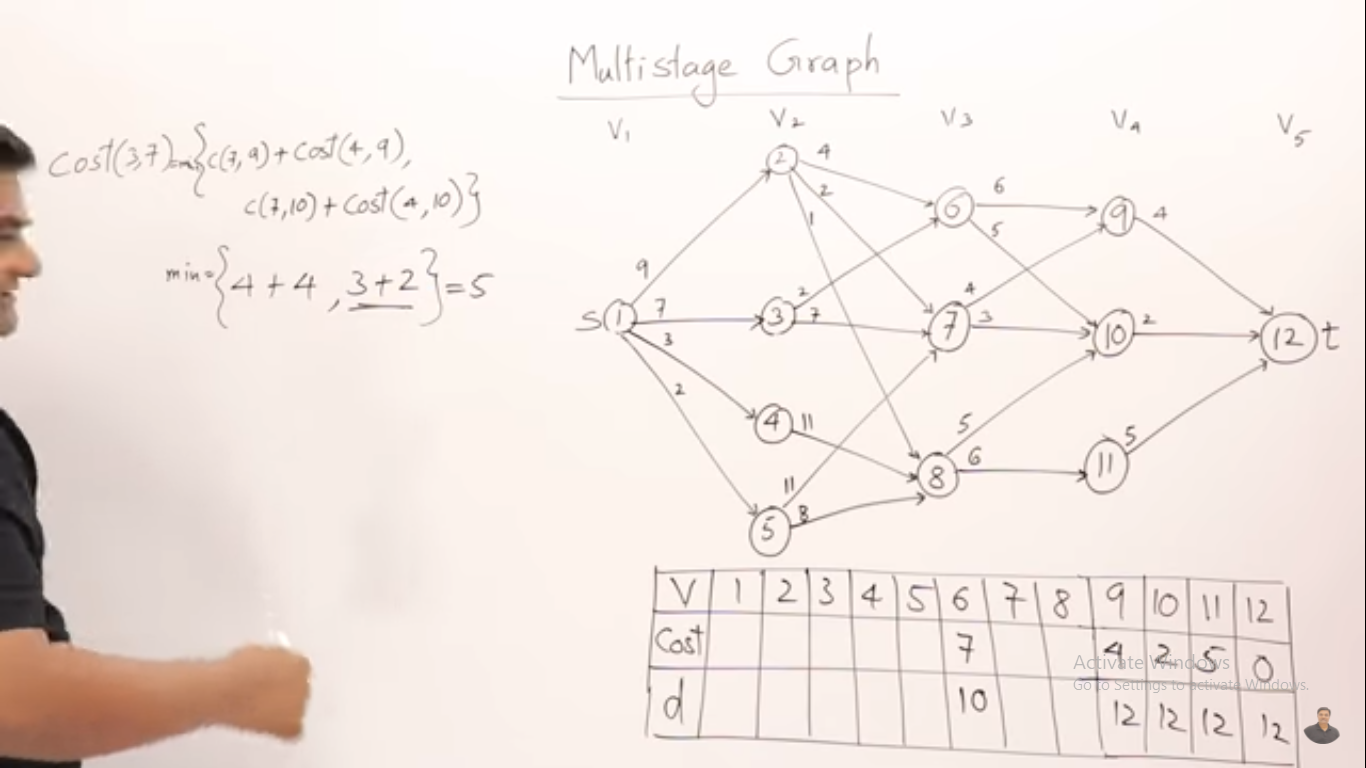 Multistage Graph
V1 V2 V3 V4 V5
Cost(3,7)=min{c(7,9)+Cost(4,9),
c(7,10)+Cost(4,10)}
min={4+4,3+2}=5
2 4
2
1
6 6
5
9 4
9
S 1 7
3
2
3 2
7
7 4
3
10 2
12 t
4 11
8 5
6
11 5
5 11
8
V 1 2 3 4 5 6 7 8 9 10 11 12
Cost 7 4 2 5 0
d 10 12 12 12 12
Activate Windows
Go to Settings to activate Windows.